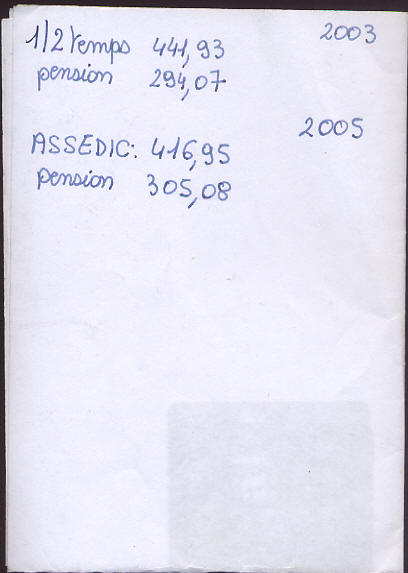 2003
1/2 temps 441,93
pension 294,07
2005
ASSEDIC: 416,95
pension 305,08